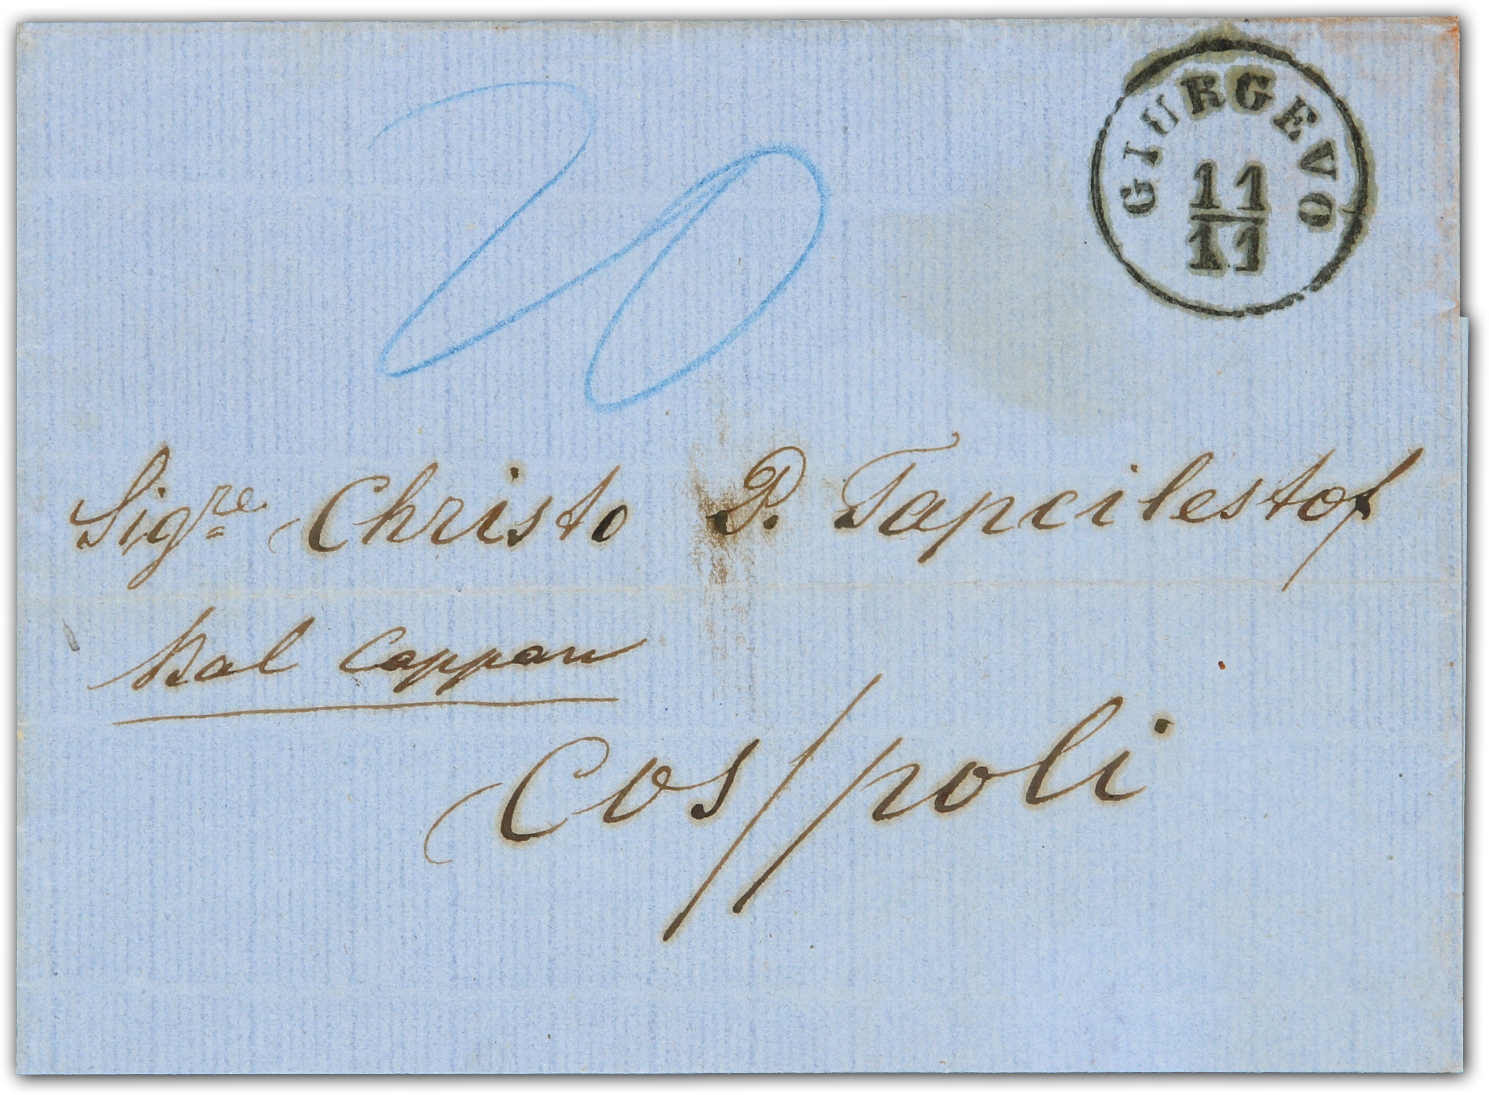 20
GIURGEVO
11
11
Sigre Christo P. Tapcilestof
Bal Cappan
Cos//poli